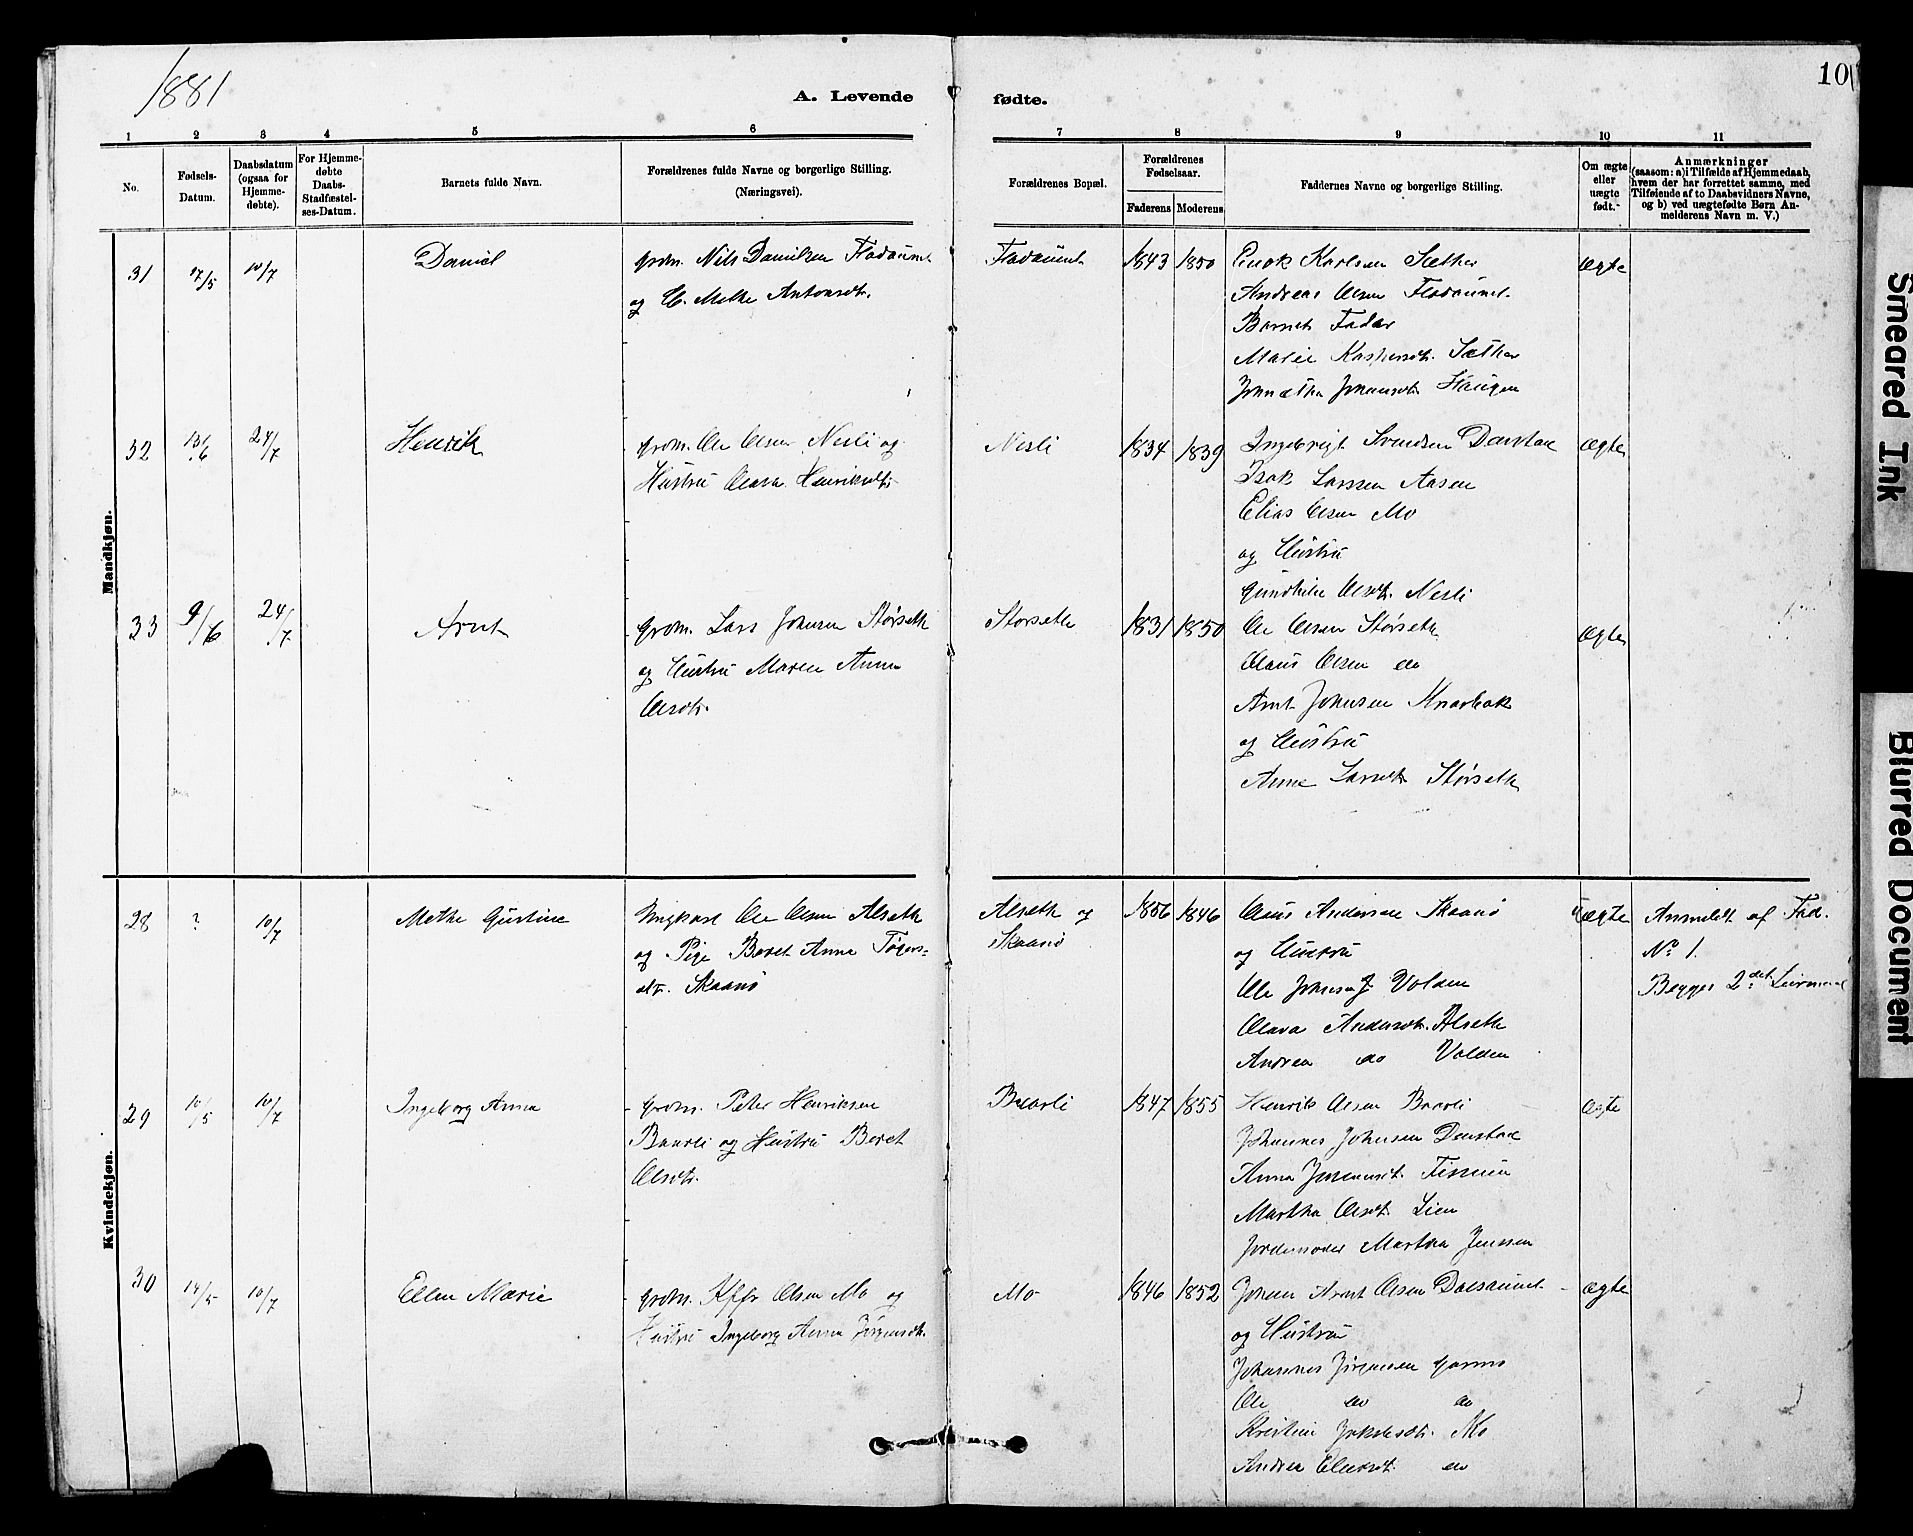 1881
A. Levende
fødte.
10
1 2 3 4 5 6
7 8 9 10 11
No.
Fødsels-
Datum.
Daabsdatum
(ogsaa for
Hjemme-
døbte).
For Hjemme-
døbte
Daabs-
Stadfæstel-
ses-Datum.
Barnets fulde Navn.
Forældrenes fulde Navne og borgerlige Stilling.
(Næringsvei).
Forældrenes Bopæl.
Forældrenes
Fødselsaar.
Faderens Moderens
Faddernes Navne og borgerlige Stilling.
Om ægte
eller
uægte
født.
Anmærkninger
(saasom: a) i Tilfælde af Hjemmedaab,
hvem der har forrettet samme, med
Tilføiende af to Daabsvidners Navne,
og b) ved uægtefødte Børn An-
melderens Navn m. V.)
Mandkjøn.
31
17/5
10/7
Daniel
grdm. Nils Danielsen Fladaunet
og H. Mette Antonsdt.
Fladaunet
1843 1850
Enok Karlsen Sæther
Andreas Olsen Fladaunet
Barnets Fader
Jonetha Johansdt. Haugen
ægte
32
13/6
24/7
Henrik
grdm. Ole Olsen Nesli og
Hustru Olava Henriksdt.
Nesli
1834 1839
Ingebrigt Svendsen
Isak Larssen Aasen
Elias Olsen Mo
og Hustru
Gundhilde Olsdt. Nesli
ægte
33
9/6
24/7
Arnt
grdm. Lars Johnsen Størseth
og Hustru Maren Anna
Olsdt.
Størseth
1831 1850
Ole Olsen Størseth
Olaus Olsen do
Arnt Johnsen
og Hustru
Anne Larsdt Størseth
ægte
Kvindekjøn.
28
?
10/7
Mette Gustine
Ungkarl Ole Olsen Alseth
og Pige Beret Anna
dtr. Skaanø
Alseth og
Skaanø
1856 1846
Claus Andersen Skaanø
og Hustru
Ole Johnsen Volden
Olava Andersdt. Alseth
Andrea do Volden
uægte
Anmeldt af Fad.
No 1.
Begges 2det Leiermaal
29
10/5
10/7
Ingeborg Anna
grdm. Peter Henriksen
Baarli og Hustru Beret
Olsdt.
Baarli
1847 1855
Henrik Olsen Baarli
Johannes Johnsen Denstad
Anna Johannsdt. Tissum
Martha Olsdt. Lien
Jordemoder Martha Jenssen
ægte
30
14/5
10/7
Ellen Marie
grdm. Kffr Olsen Mo og
Hustru Ingeborg Anna Jørgensdt.
Mo
1846 1852
Johan Arnt Olsen Dalsaunet
og Hustru
Johannes Jørgensen
Ole do do
Kristine Jakobsdt. Mo
Andrea do
ægte
Smeared Ink
Blurred Document